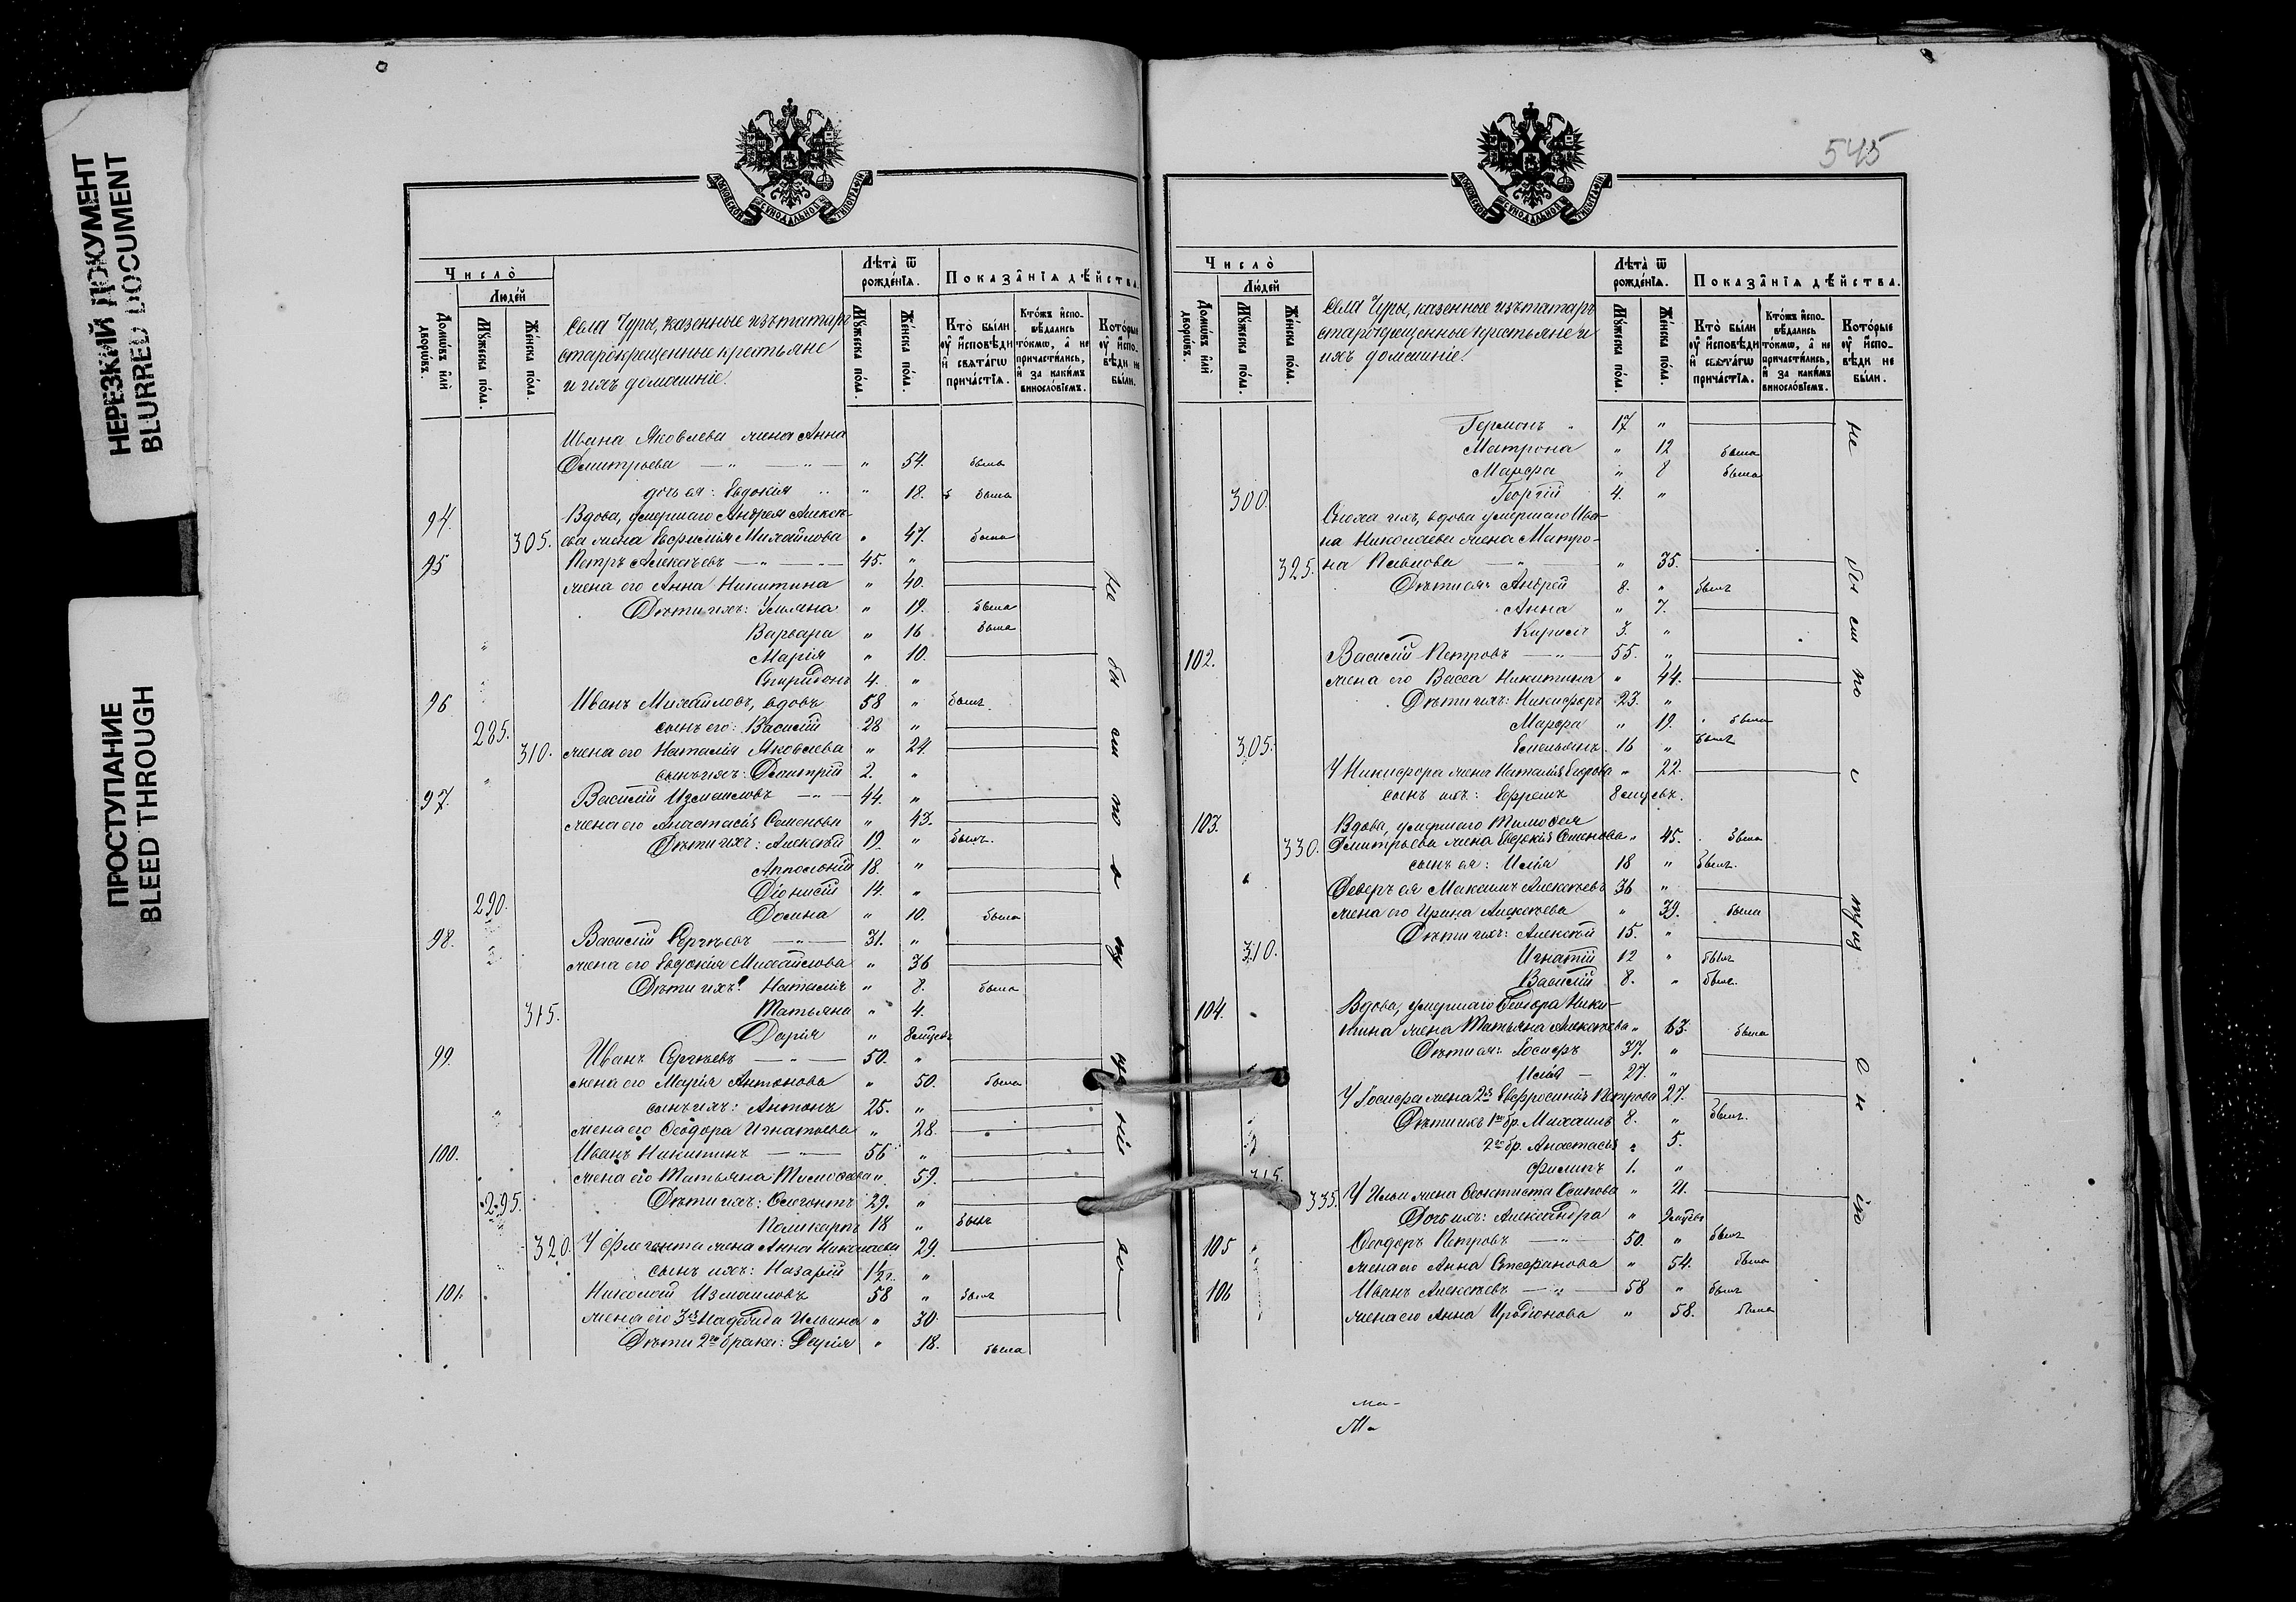 НЕРЕЗКИЙ ДОКУМЕНТ
BLURRED DOCUMENT
ПРОСТУПАНИЕ
BLEED THROUGH
МОСКОВСКОЙ СѴНОДАЛЬНОЙ ТИПОГРАФІИ
Число̀
Людéй
Домѡ́въ и҆лѝ дворѡ́въ.
Мꙋ́жеска по́ла.
Же́нска по́ла.
Села Чуры, казенные изъ татаръ
старокрещенные крестьяне
и ихъ домашніе.
Лѣ̑та ѿ рожде́нїѧ.
Мꙋ́жеска по́ла.
Же́нска по́ла.
Показа̑нїѧ дѣ́йства.
Кто̀ были оу҆ и҆сповѣди и҆ свѧта́гѡ прича́стїѧ.
Кто́жъ и҆сповѣ́дались то́кмѡ, а҆ не причасти́лись, и҆ за каки́мъ винословїемъ.
Кото́рые оу҆ и҆сповѣди не бы́ли.
Ивана Яковлева жена Анна
Дмитрьева — " — " — " 54. была
дочь ея: Евдокія " 18. была
94. Вдова, умершаго Андрея Алексѣ-
305. ева жена Евфимія Михайлова " 47. была
95 Петръ Алексѣевъ — " — 45. "
жена его Анна Никитина " 40.
Дѣти ихъ: Ульяна " 19. была
Варвара " 16 была
Марія " 10.
Спиридонъ 4. "
96 Иванъ Михайловъ, вдовъ 58 " былъ.
285. сынъ его: Василій 28 "
310. жена его Наталія Яковлева " 24
сынъ ихъ: Дмитрій 2. "
97. Василій Измаиловъ — " — 44. "
жена его Анастасія Семенова " 43.
Дѣти ихъ: Алексѣй 19. " былъ.
Апполоній 18. "
Діонисій 14. "
290. Домна " 10. была
98. Василій Сергѣевъ — " — 31. "
жена его Евдокія Михайлова " 36
Дѣти ихъ: Наталія " 8. была
315. Татьяна " 4.
Дарія " 8 мѣсѣвъ
99. Иванъ Сергѣевъ — " — 50. "
жена его Марія Антонова " 50. была
сынъ ихъ: Антонъ 25. "
жена его Ѳеодора Игнатьева " 28.
100. Иванъ Никитинъ — " — 56 "
жена его Татьяна Тимоѳеева " 59.
295. Дѣти ихъ: Флегонтъ 29. "
Поликарпъ 18 " былъ
320. У Флегонта жена Анна Николаева 29.
сынъ ихъ: Назарій 1½ г. "
101. Николай Измаиловъ 58 " былъ
жена его 3я Надежда Ильина " 30.
Дѣти 2го брака: Дарія " 18. была
Не бы ли по
545
МОСКОВСКОЙ СѴНОДАЛЬНОЙ ТИПОГРАФІИ
Число̀
Людéй
Домѡ́въ и҆лѝ дворѡ́въ.
Мꙋ́жеска по́ла.
Же́нска по́ла.
Села Чуры, казенные изъ татаръ
старокрещенные крестьяне и
ихъ домашніе.
Лѣ̑та ѿ рожде́нїѧ.
Мꙋ́жеска по́ла.
Же́нска по́ла.
Показа̑нїѧ дѣ́йства.
Кто̀ были оу҆ и҆сповѣди и҆ свѧта́гѡ прича́стїѧ.
Кто́жъ и҆сповѣ́дались то́кмѡ, а҆ не причасти́лись, и҆ за каки́мъ винословїемъ.
Кото́рые оу҆ и҆сповѣди не бы́ли.
Германъ 17 "
Матрона " 12 была
Марфа " 8 была
300. Георгій 4. "
Сноха ихъ, вдова умершаго Ива-
на Николаева жена Матро-
325. на Павлова — " — " 35.
Дѣти ея: Андрей 8. " былъ
Анна " 7.
Кирилъ 3. "
102. Василій Петровъ — " — 55. "
жена его Васса Никитина " 44.
Дѣти ихъ: Никифоръ 23. "
Марфа " 19. была
305. Емельянъ 16 " былъ
У Никифора жена Наталія Егорова " 22.
сынъ ихъ: Ефремъ 8 мѣсѣвъ.
103. Вдова, умершаго Тимофея
330. Дмитрьева жена Евдокія Семенова " 45. была
сынъ ея: Илія 18 " былъ.
Деверь ея Максимъ Алексѣевъ 36 "
жена его Ирина Алексѣева " 39. была
Дѣти ихъ: Алексѣй 15. "
310. Игнатій 12 " былъ
Василій 8. " былъ.
104. Вдова, умершаго Ѳеодора Ники-
тина жена Татьяна Алексѣева " 63. была
Дѣти ея: Іосифъ 37. "
Илія — 27. "
У Іосифа жена 2я Евфросинія Петрова 27.
Дѣти ихъ 1го бр. Михаилъ 8. " былъ.
2го бр. Анастасія " 5.
315. Филипъ 1. "
335. У Ильи жена Ѳеоктиста Осипова " 21.
Дочь ихъ: Александра "
105 Ѳеодоръ Петровъ — " — 50. " былъ
жена его Анна Стефанова " 54. была
106 Иванъ Алексѣевъ — " — 58 " былъ
жена его Анна Иродіонова " 58. была
Не бы ли по
ма-
Ма